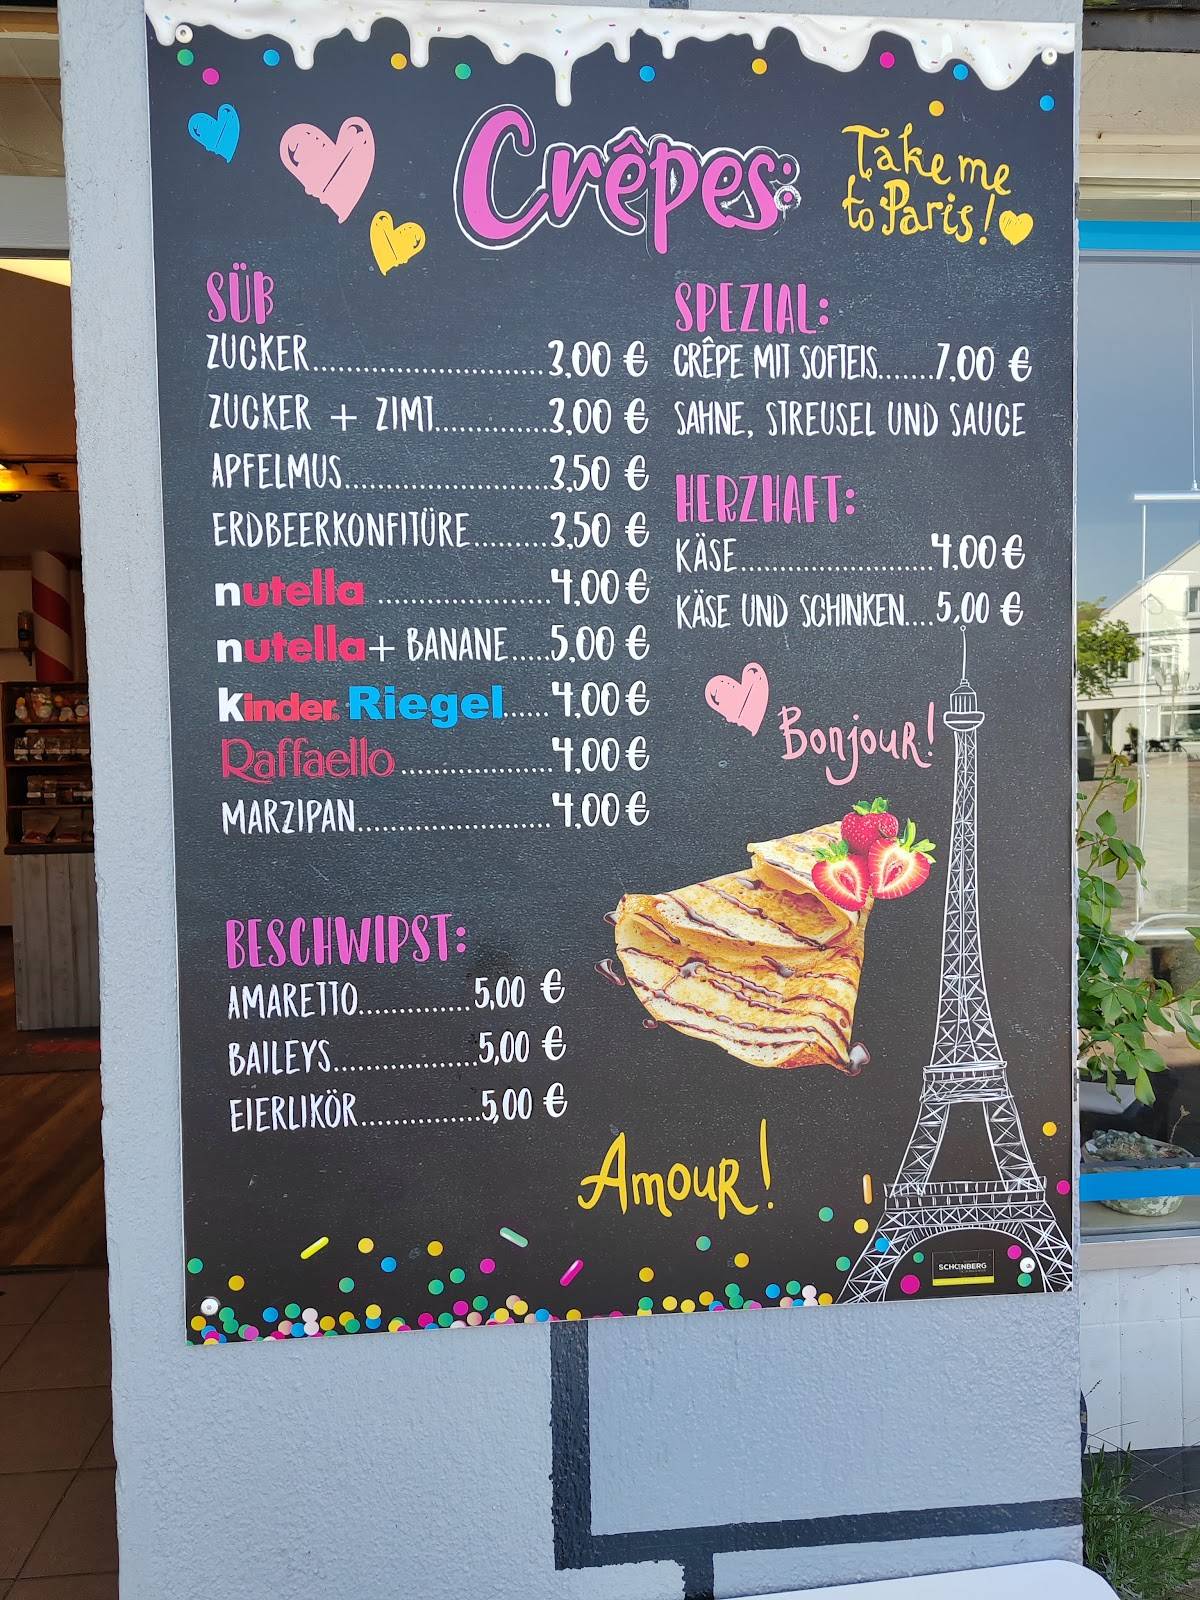 Crêpes:
Take me
to Paris!
SÜß
ZUCKER.......................3,00 €
ZUCKER + ZIMT..............3,00 €
APFELMUS.......................3,50 €
ERDBEERKONFITÜRE.........3,50 €
nutella ...................4,00 €
nutella + BANANE.....5,00 €
Kinder Riegel......4,00 €
Raffaello .................4,00 €
MARZIPAN.....................4,00 €
BESCHWIPST:
AMARETTO............5,00 €
BAILEYS.................5,00 €
EIERLIKÖR.............5,00 €
SPEZIAL:
CRÊPE MIT SOFTEIS.......7,00 €
SAHNE, STREUSEL UND SAUCE
HERZHAFT:
KÄSE.......................4,00 €
KÄSE UND SCHINKEN....5,00 €
Bonjour!
Amour!
SCHOENBERG